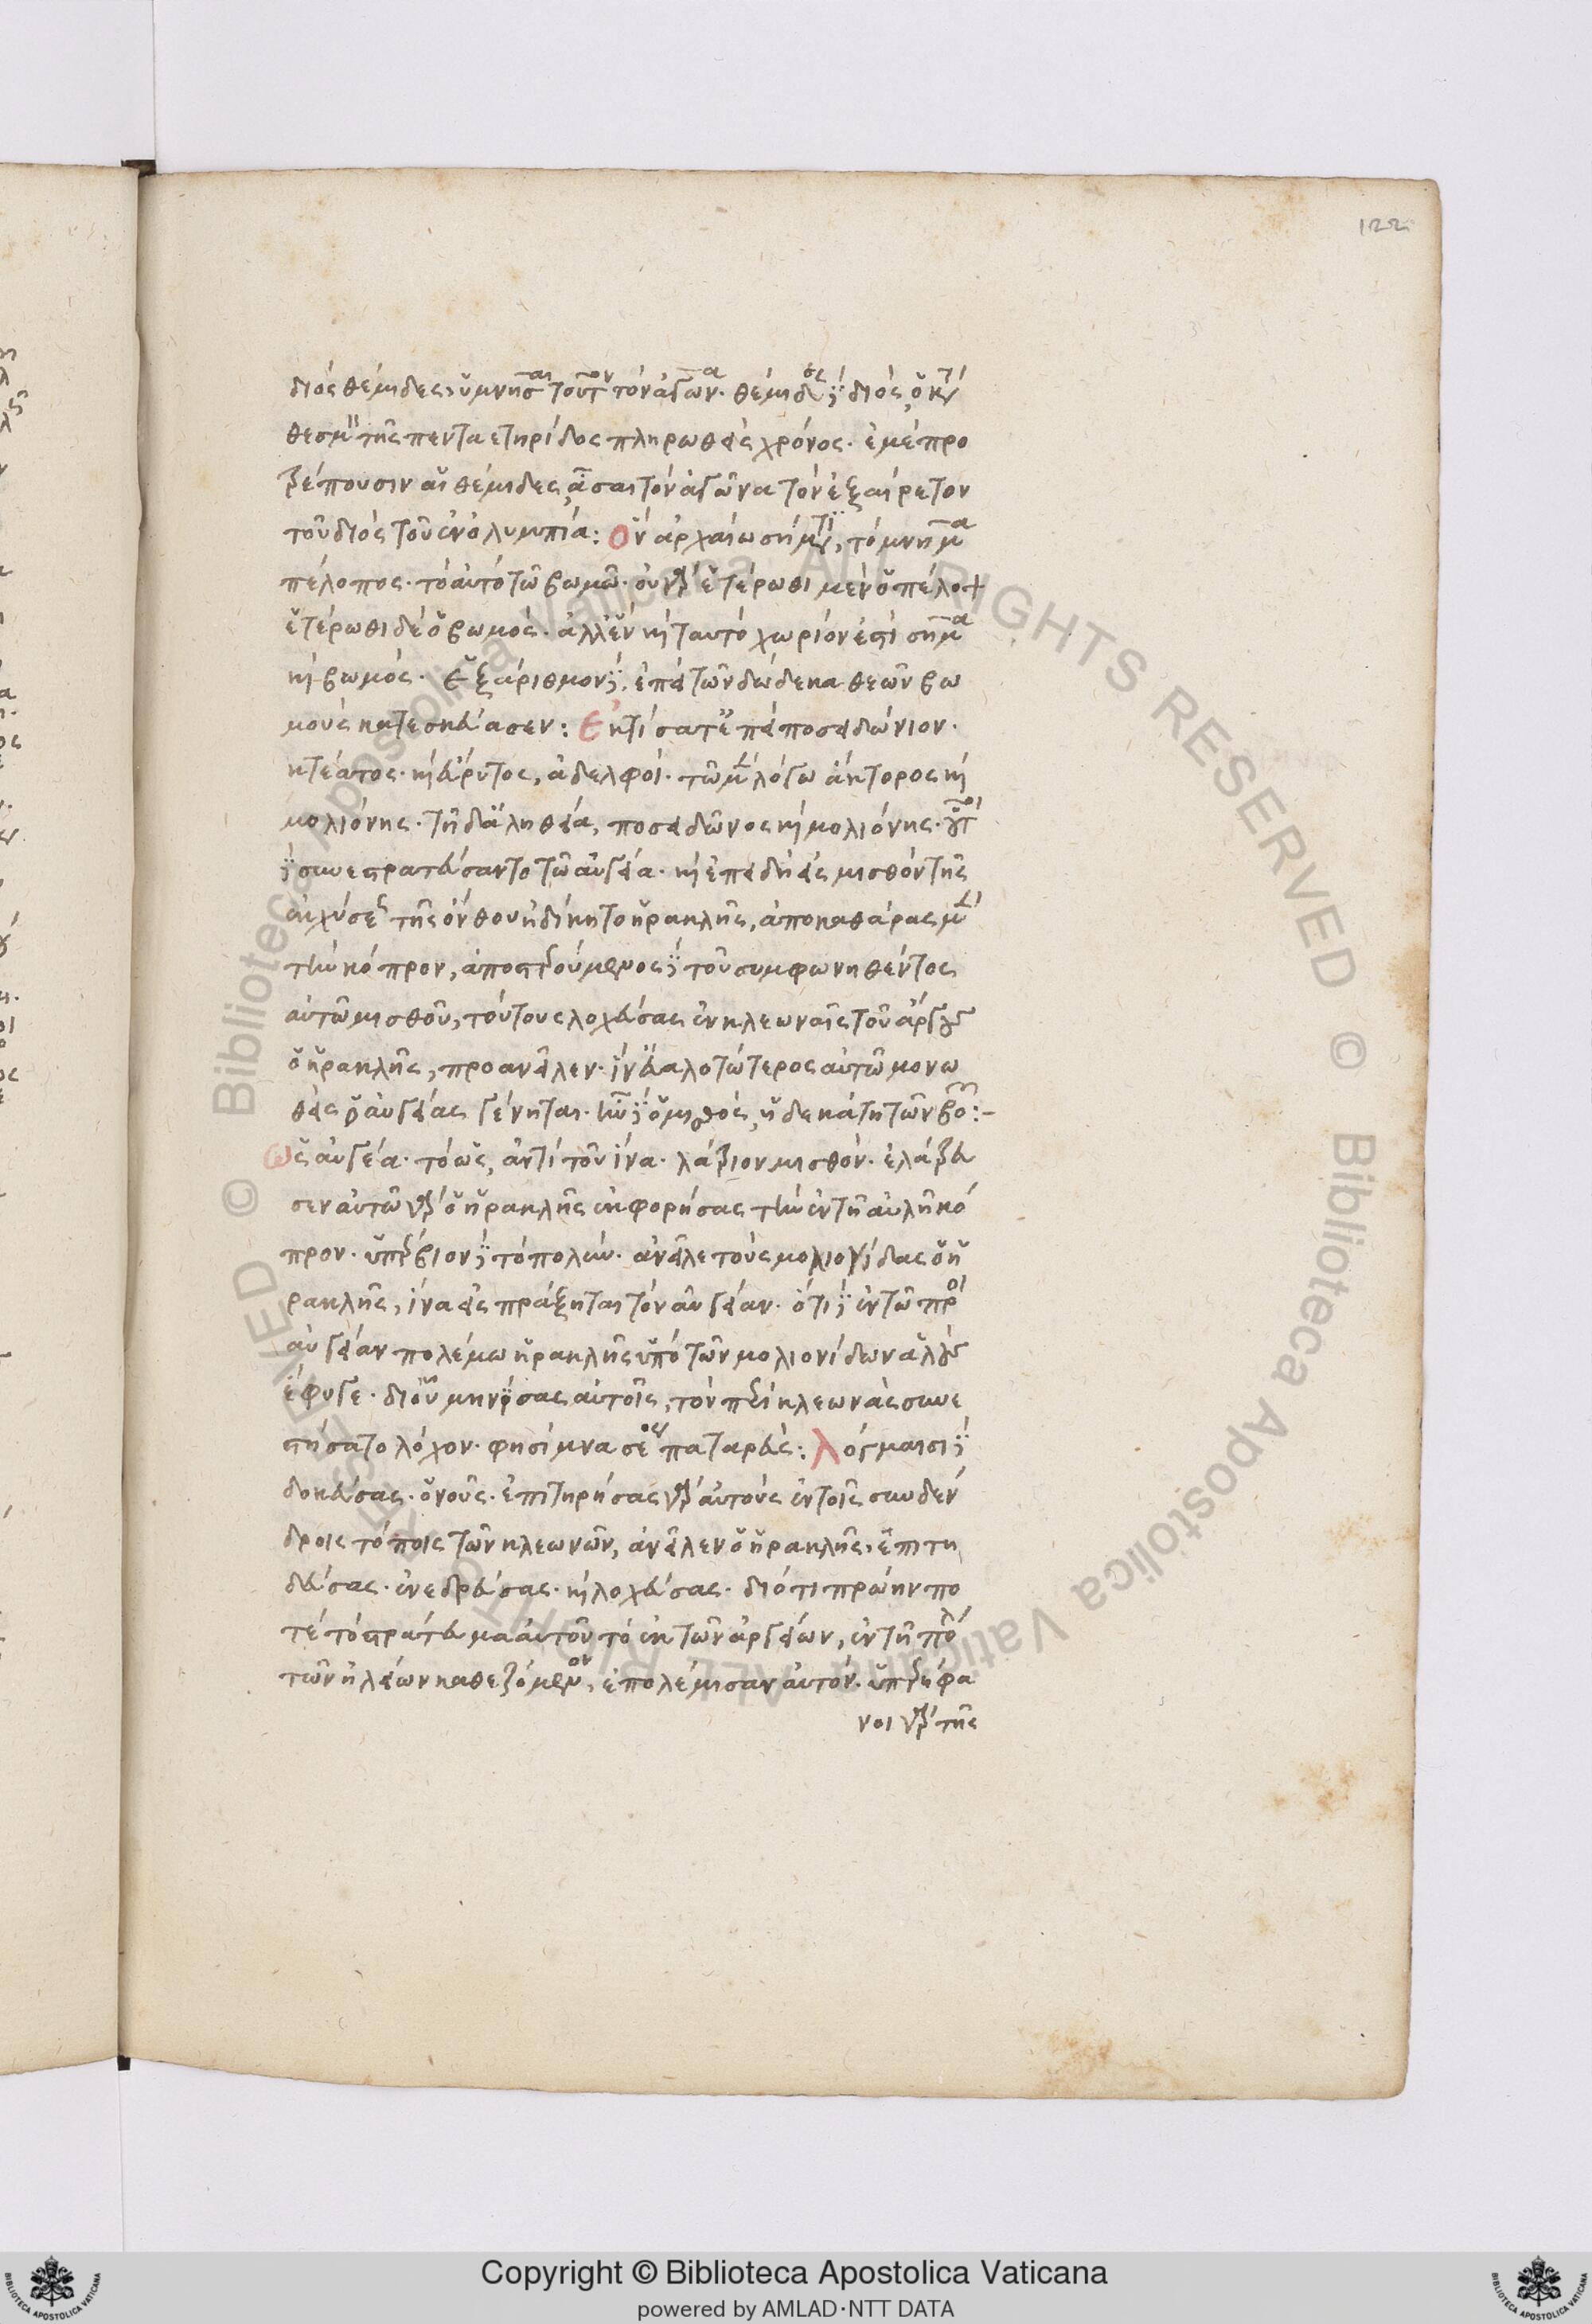 122
διὸς θέμιδες, ὕμνησαι τοῦτον τὸν ἀγῶνα. θέμιδες δὲ διὸς, ὁ κατὰ
θεσμὸν τῆς πενταετηρίδος πληρωθεὶς χρόνος. ἐμὲ προ
τρέπουσιν αἱ θέμιδες ᾆσαι τὸν ἀγῶνα τὸν ἐξαίρετον
τοῦ διὸς τοῦ ἐν ὀλυμπία: Ὃν ἀρχαίω σήματι, τὸ μνῆμα
πέλοπος. τὸ αὐτὸ τῶ βωμῶ. οὐ γὰρ ἑτέρωθι μὲν ὁ πέλοψ
ἑτέρωθι δὲ ὁ βωμός. ἀλλ' ἓν καὶ ταυτὸ χωρίον ἐστὶ σῆμα
καὶ βωμός. ἑξάριθμον δὲ, ἐπεὶ τῶν δώδεκα θεῶν βω
μοὺς κατεσκεύασεν: Ἐκτίσατο ἐπεὶ ποσειδώνιον.
κτέατος. καὶ εὔρυτος, ἀδελφοί. τῶ μὲν λόγω ἄκτορος καὶ
μολιόνης. τῆ δ' ἀληθεία, ποσειδῶνος καὶ μολιόνης. οὗτοι
δὲ συνεστρατεύσαντο τῶ αὐγεία. καὶ ἐπειδὴ εἰς μισθὸν τῆς
ἐκχύσεως τῆς ὄνθου ἠδίκητο ἡρακλῆς, ἀποκαθάρας μὲν
τὴν κόπρον, ἀποστερούμενος δὲ τοῦ συμφωνηθέντος
αὐτῶ μισθοῦ, τούτους λοχεύσας ἐν κλεωναῖς τοῦ ἄργους
ὁ ἡρακλῆς, προανεῖλεν. ἵν' εὐαλοτώτερος αὐτῶ μονω
θεὶς ὁ αὐγείας γένηται.
Ὡς αὐγέα. τὸ ὡς, ἀντὶ τοῦ ἵνα. λάτριον μισθόν. ἐλάτρευ
σεν αὐτῶ γὰρ ὁ ἡρακλῆς ἐκφορήσας τὴν ἐν τῆ αὐλῆ κό
προν. ὑπέρβιον δὲ τὸ πολύν. ἀνεῖλε τοὺς μολιονίδας ὁ ἡ
ρακλῆς, ἵνα εἰσπράξηται τὸν αὐγείαν. ὅτι δὲ ἐν τῶ πρὸς
αὐγείαν πολέμω ἡρακλῆς ὑπὸ τῶν μολιονίδων
ἔφυγε. διὸ μηνίσας αὐτοῖς, τὸν περὶ κλεωνὰς συνε
στήσατο λόχον. φησὶ μνασέας ὁ παταρεύς: Λόχμαισι δὲ
δοκεύσας. ὁ νοῦς. ἐπιτηρήσας γὰρ αὐτοὺς ἐν τοῖς συνδέν
δροις τόποις τῶν κλεωνῶν, ἀνεῖλεν ὁ ἡρακλῆς, ἐπιτη
δεύσας. ἐνεδρεύσας. καὶ λοχεύσας. διότι πρώην πο
τὲ τὸ στράτευμα αὐτοῦ τὸ ἐκ τῶν ἀργείων, ἐν τῆ πόλει
τῶν ἠλείων καθεζόμενον, ἐπολέμισαν αὐτόν. ὑπερήφα
νοι γὰρ τῆς
Copyright © Biblioteca Apostolica Vaticana
powered by AMLAD·NTT DATA